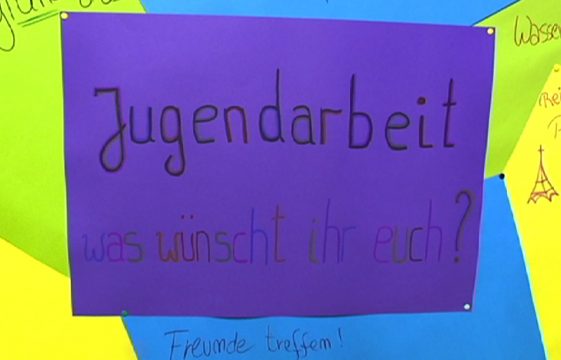 Jugendarbeit
was wünscht ihr euch?
Freunde treffen!